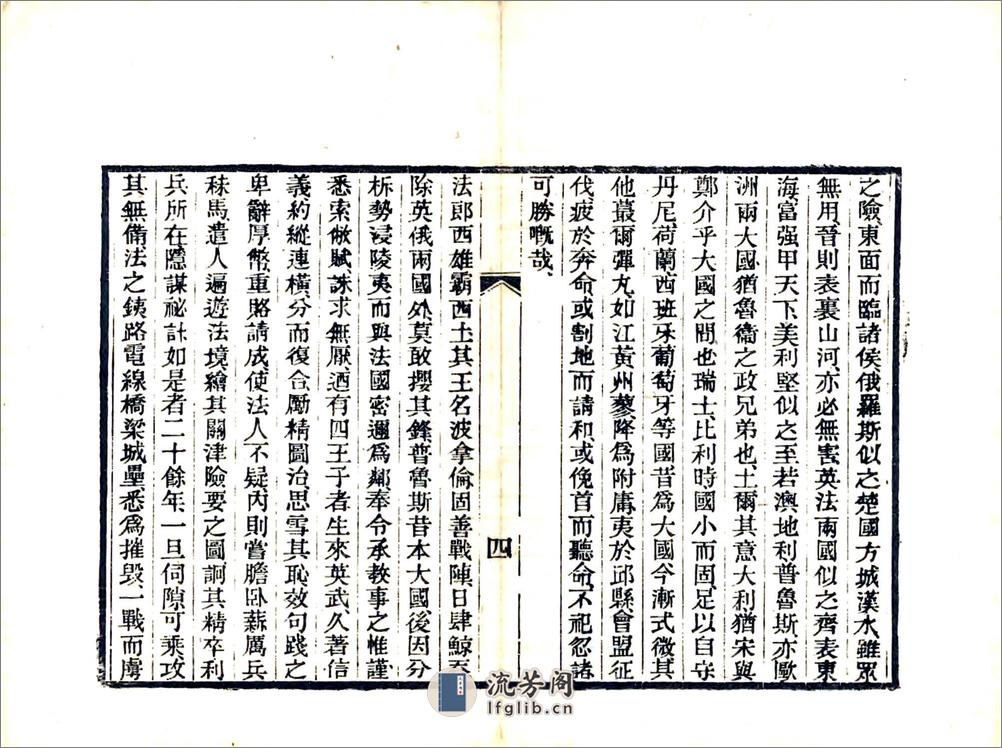 之險、東面而臨諸侯、俄羅斯似之、楚國方城漢水、雖眾
無用、晉則表裏山河、亦必無害、英法兩國似之、齊表東
海、富强甲天下、美利堅似之、至若澳地利普魯斯、亦歐
洲兩大國、猶魯衞之政、兄弟也、土爾其意大利、猶宋與
鄭、介乎大國之間也、瑞士、比利時、國小而固、足以自守、
丹尼、荷蘭、西班牙、葡萄牙等國、昔為大國、今漸式微、其
他蕞爾彈丸、如江黃州蓼、降為附庸、夷於邱縣、會盟征
伐、疲於奔命、或割地而請和、或俛首而聽命、不祀忽諸、
可勝嘅哉、
四
法郎西雄霸西土、其王名波拿倫、固善戰陣、日肆鯨吞、
除英俄兩國外、莫敢攖其鋒、普魯斯昔本大國、後因分
柝、勢浸陵夷、而與法國密邇為鄰、奉令承教、事之惟謹、
悉索敝賦、誅求無厭、迺有四王子者、生來英武、久著信
義、約縱連橫、分而復合、勵精圖治、思雪其恥、效句踐之
卑辭厚幣、重賂請成、使法人不疑、內則嘗膽臥薪、厲兵
秣馬、遣人遍遊法境、繪其關津險要之圖、詗其精卒利
兵所在、隱謀祕計、如是者二十餘年、一旦伺隙、可乘攻
其無備、法之鉄路電線橋梁城壘、悉為摧毀、一戰而虜
流芳阁
lfglib.cn